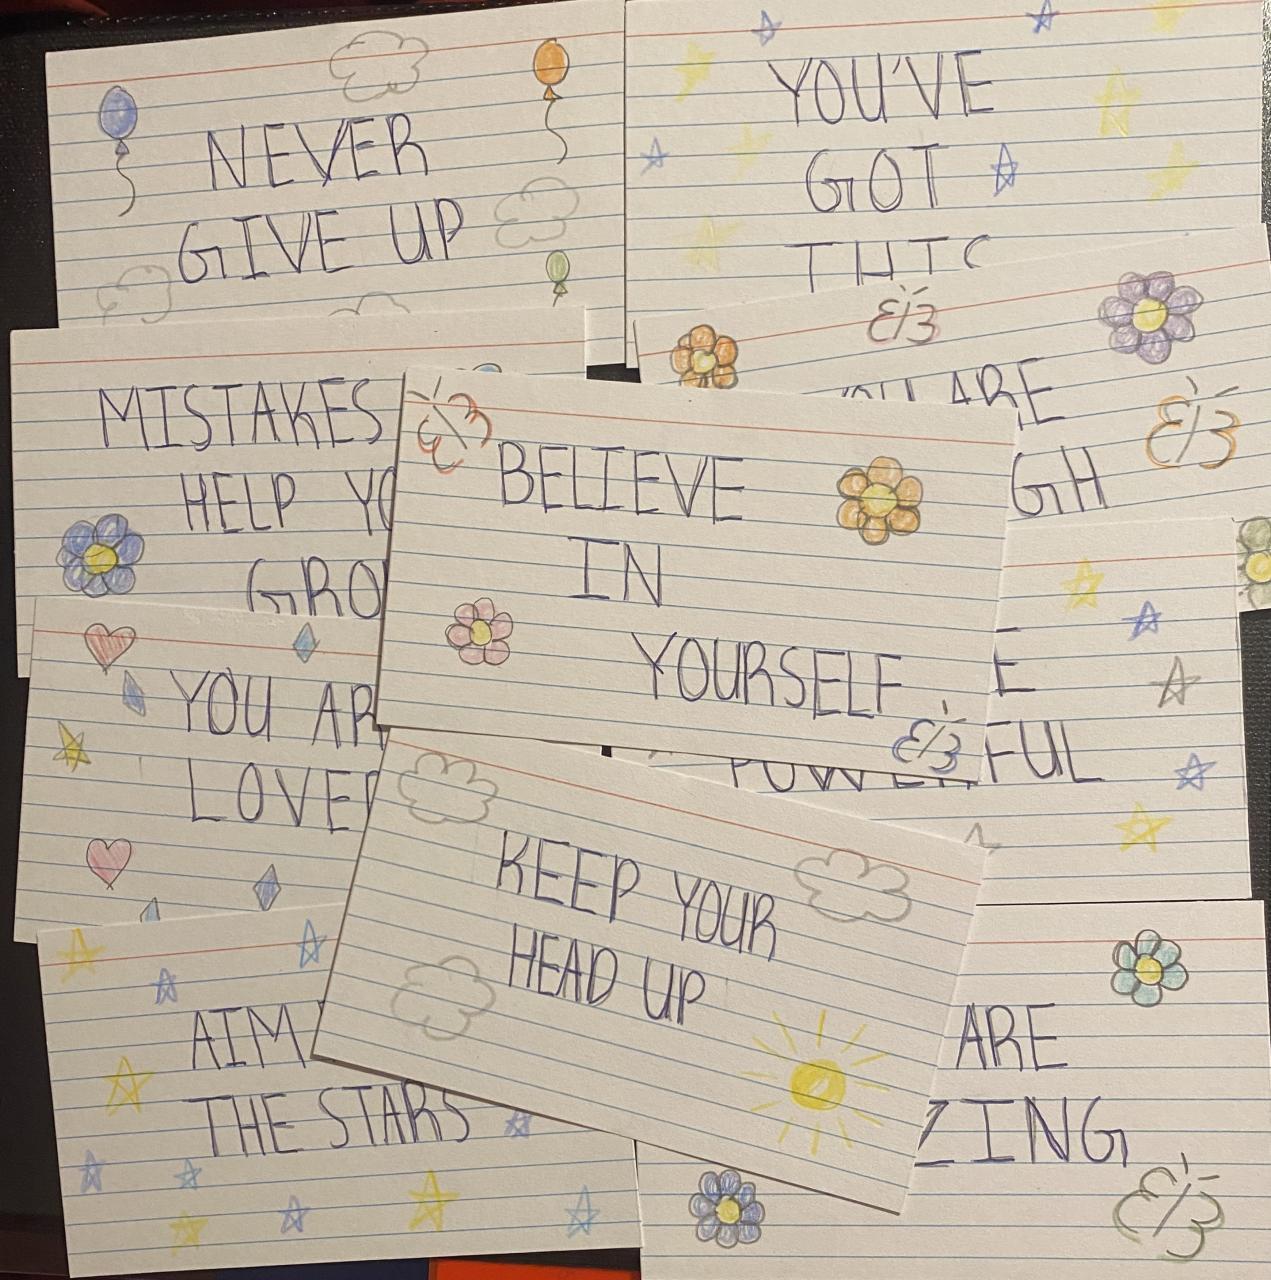 NEVER
GIVE UP
YOU'VE
GOT
THIS
MISTAKES
HELP YO
GRO
YOU ARE
GH
BELIEVE
IN
YOURSELF
YOU AR
LOVE
E
POWERFUL
KEEP YOUR
HEAD UP
AIM
THE STARS
ARE
ZING